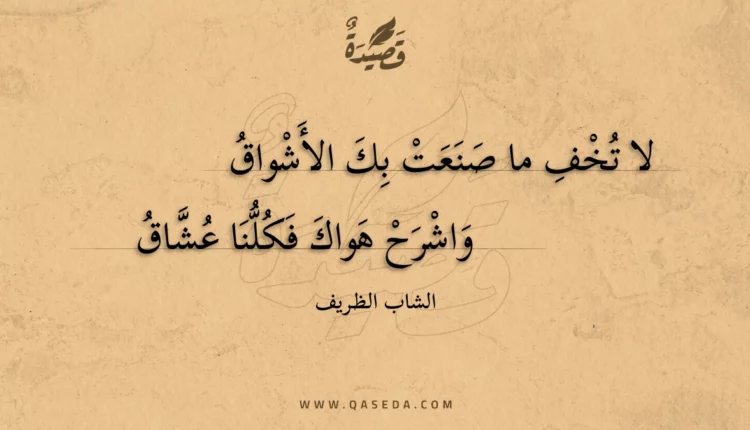 قَصِيْدَةٌ
لا تُخْفِ ما صَنَعَتْ بِكَ الأَشْواقُ
وَاشْرَحْ هَواكَ فَكُلُّنَا عُشَّاقُ
الشاب الظريف
WWW.QASEDA.COM